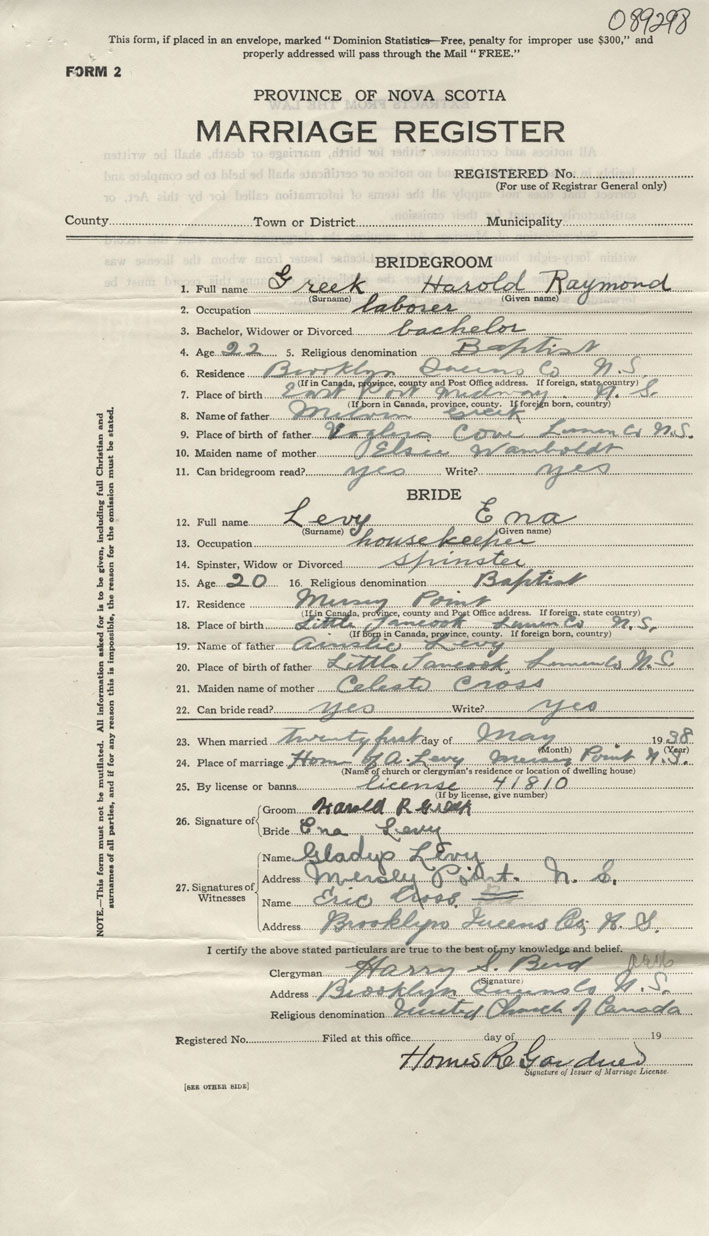 089298
This form, if placed in an envelope, marked "Dominion Statistics—Free, penalty for improper use $300," and
properly addressed will pass through the Mail "FREE."
FORM 2
PROVINCE OF NOVA SCOTIA
MARRIAGE REGISTER
REGISTERED No.
(For use of Registrar General only)
County Town or District Municipality
BRIDEGROOM
1. Full name Greek Harold Raymond
(Surname) (Given name)
2. Occupation laborer
3. Bachelor, Widower or Divorced bachelor
4. Age 22 5. Religious denomination Baptist
6. Residence Brooklyn Queens Co N.S.
(If in Canada, province, county and Post Office address. If foreign, state country)
7. Place of birth East Port Medway N.S.
(If born in Canada, province, county. If foreign born, country)
8. Name of father Melvin Greek
9. Place of father Voglers Cove Lunen Co N.S.
10. Maiden name of mother Elsie Wamboldt
11. Can bridegroom read? yes Write? yes
BRIDE
12. Full name Levy Ena
(Surname) (Given name)
13. Occupation housekeeper
14. Spinster, Widow or Divorced spinster
15. Age 20 16. Religious denomination Baptist
17. Residence Mersey Point
(If in Canada, province, county and Post Office address. If foreign, state country)
18. Place of birth Little Tancook Lunen Co N.S.
(If born in Canada, province, county. If foreign born, country)
19. Name of father Levy
20. Place of birth of father Little Tancook Lunen Co N.S.
21. Maiden name of mother Celeste Cross
22. Can bride read? yes Write? yes
23. When married twenty first day of May 1938
(Month) (Year)
24. Place of marriage Home of A. Levy Mersey Point N.S.
(Name of church or clergyman's residence or location of dwelling house)
25. By license or banns license 41810
(If by license, give number)
26. Signature of
Groom Harold R Greek
Bride Ena Levy
27. Signatures of Witnesses
Name Gladys Levy
Address Mersey Point. N.S.
Name Eric Cross
Address Brooklyn Queens Co, N.S.
I certify the above stated particulars are true to the best of my knowledge and belief.
Clergyman Harry S. Bird
(Signature)
Address Brooklyn Queens Co N.S.
Religious denomination United Church of Canada
Registered No. Filed at this office day of 19
R Gardner
Signature of Issuer of Marriage License.
[SEE OTHER SIDE]
NOTE.—This form must not be mutilated. All information asked for is to be given, including full Christian and
surnames of all parties, and if for any reason this is impossible, the reason for the omission must be stated.